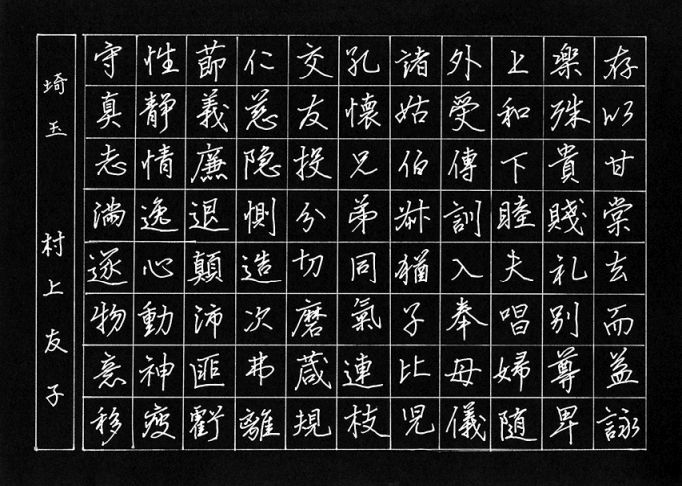 存以甘棠去而益詠
楽殊貴賤礼別尊卑
上和下睦夫唱婦随
外受傅訓入奉母儀
諸姑伯叔猶子比児
孔懐兄弟同氣連枝
交友投分切磨葴規
仁慈隐惻造次弗離
節義廉退顛沛匪虧
性静情逸心動神疲
守真志満逐物意移
埼玉 村上友子